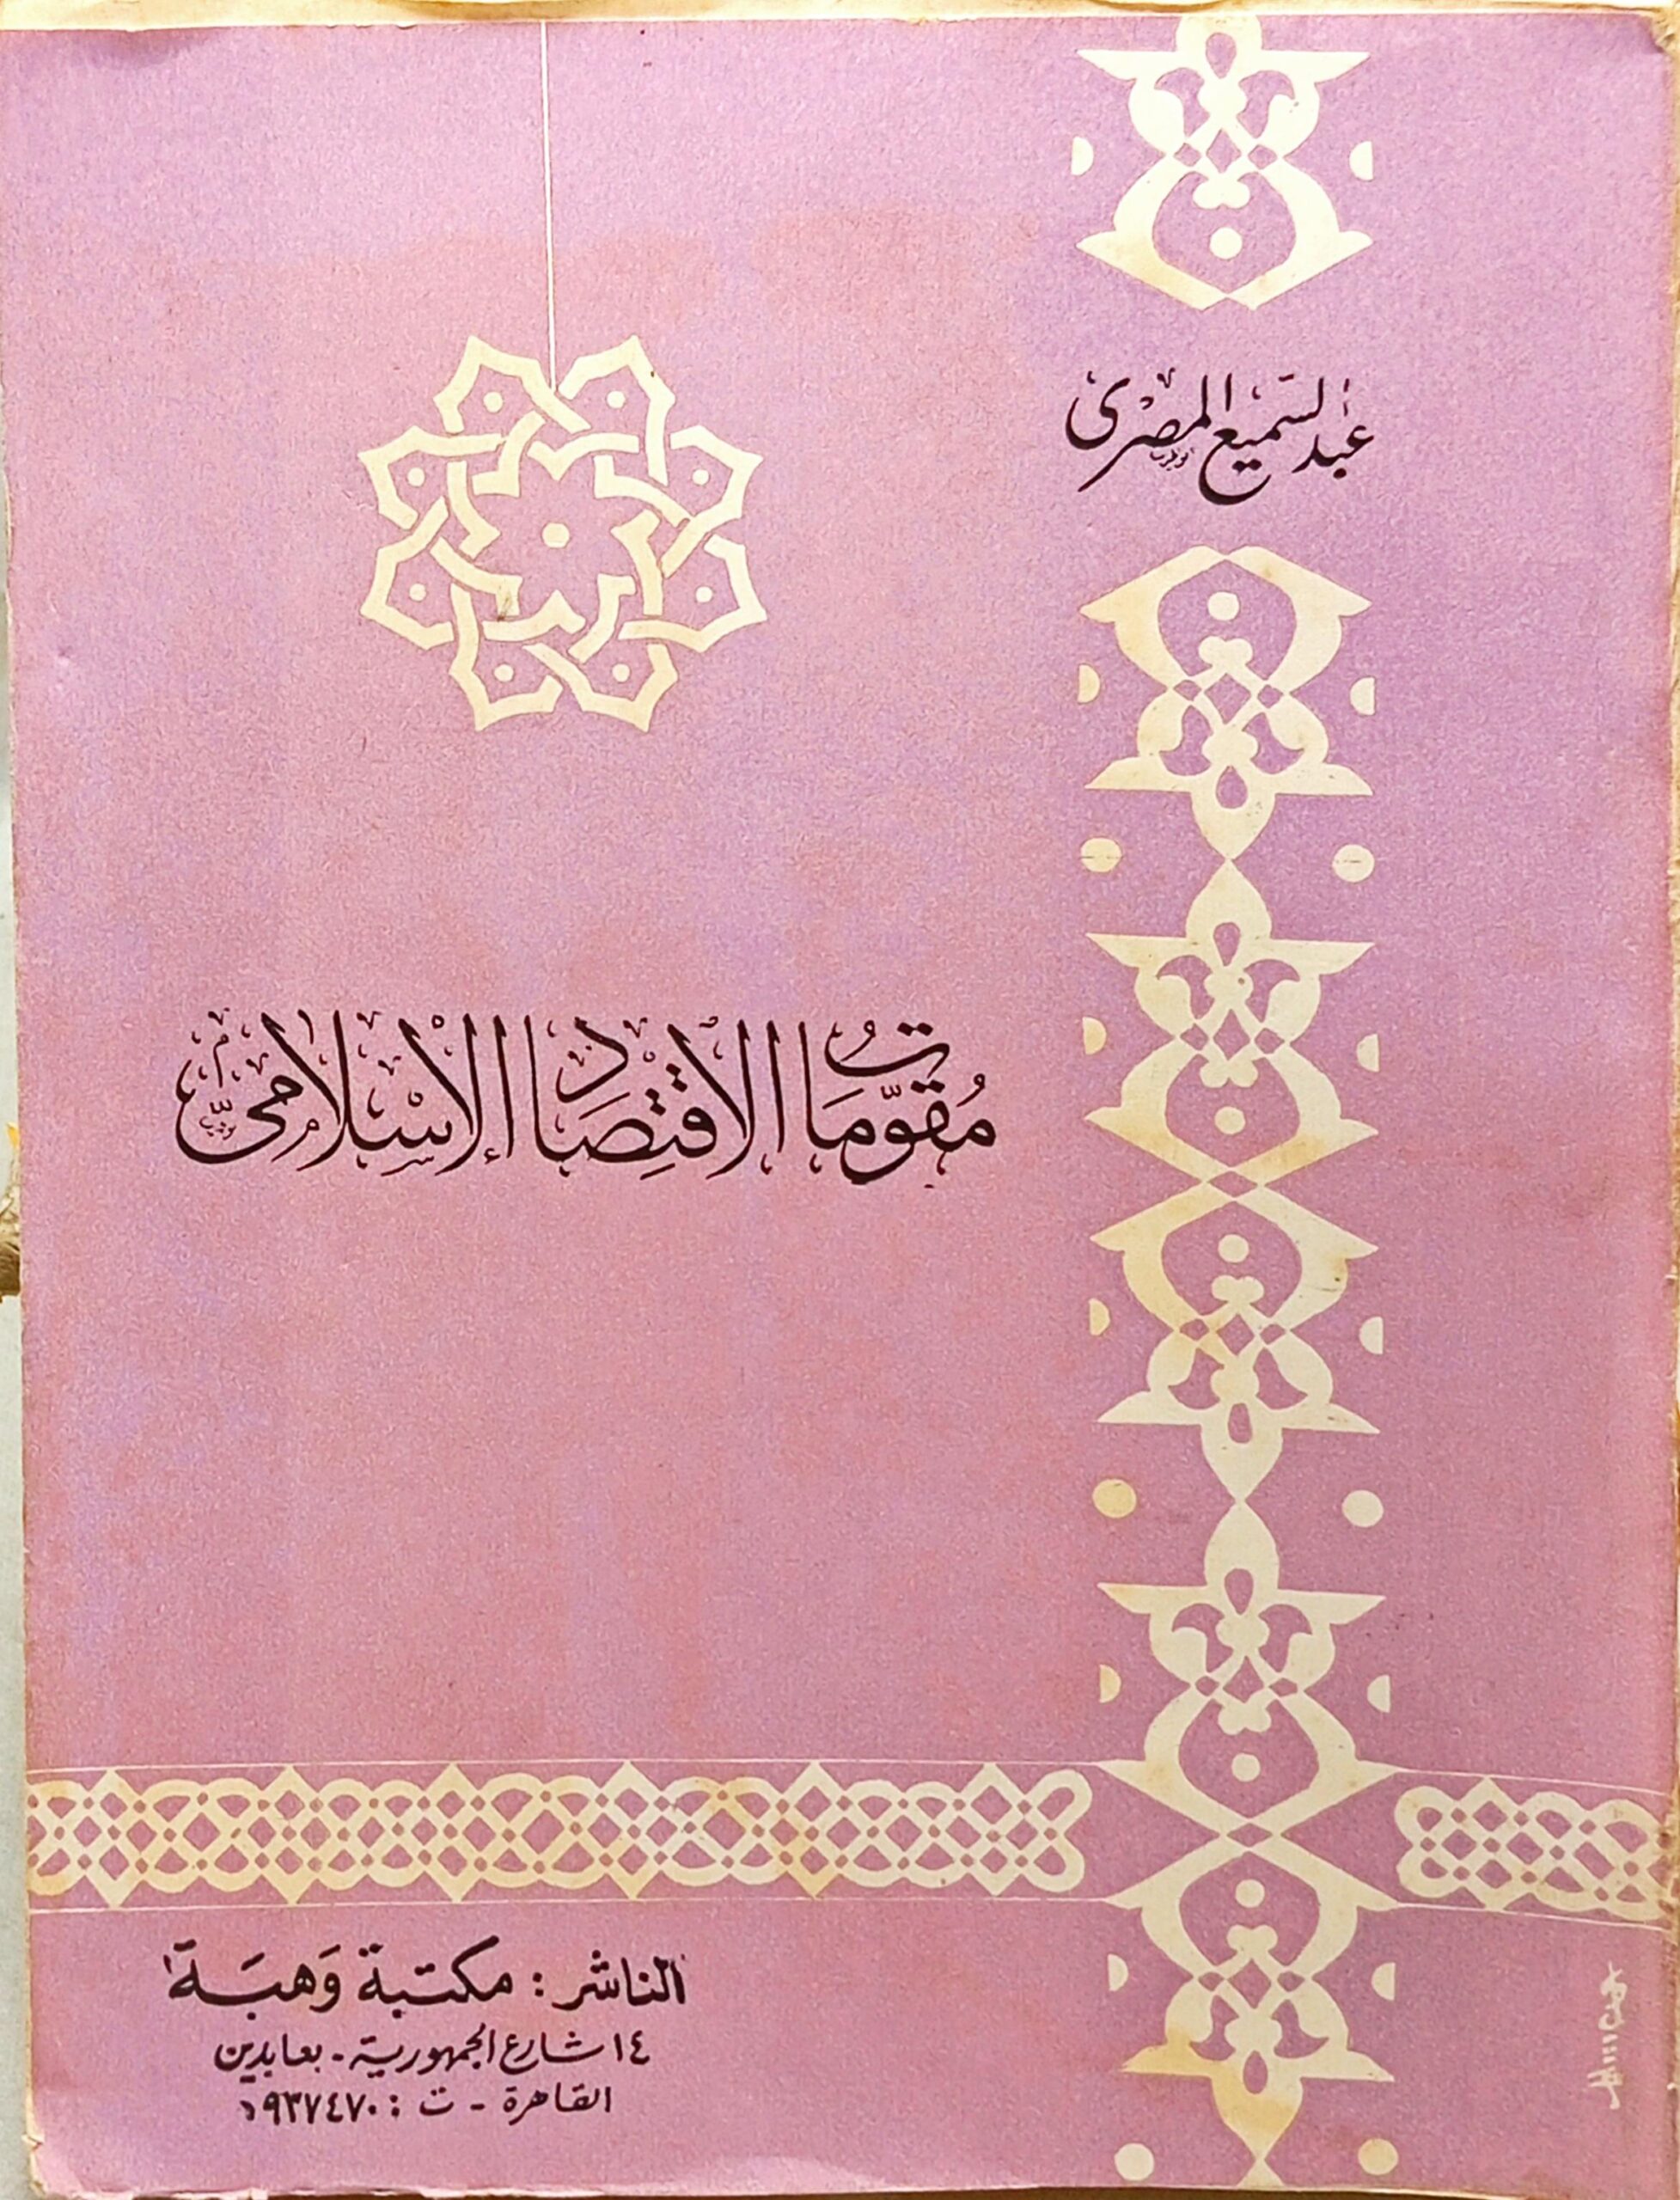 عبد السميع المصرى
مُقوّمَاتُ الاقتِصَاد الإسْلامىّ
الناشر : مكتبة وَهبَة
١٤ شارع الجمهورية - بعابدين
القاهرة - ت : ٩٣٧٤٧٠